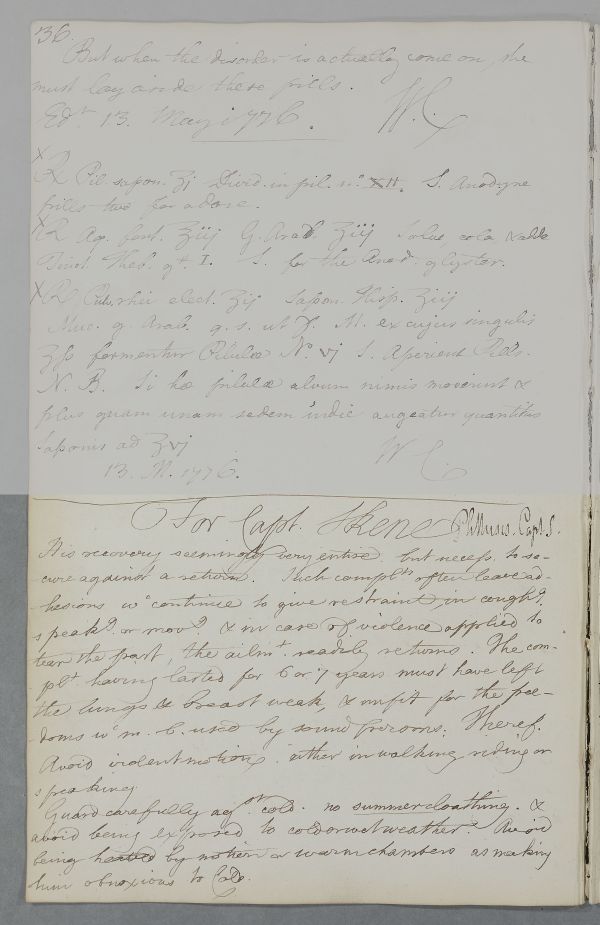 36.
But when the disorder is actually come on, she
must lay aside these pills.
Edr. 13. May 1776. W.C.
X
℞ Pil. sapon. ʒj Divid. in pil. no. XII. S. Anodyne
pills two for a dose.
X
℞ Aq. font. ℥iij G. Arab. ʒiij Solve, cola & adde
Tinct. Theb. gt. L. S. for the Anod. glyster.
X ℞ Pulv. rhii elect. ʒij Sapon. Hisp. ʒiij
Muc. g. Arab. q. s. ut f. M. ex cujus singulis
ʒſs formentur Pilulæ No. vj S. Aperient Pills.
N. B. Si hæ pilulæ alvum nimis moverint &
plus quam unam sedem indie augeatur quantitas
saponis ad ʒvj
13. M. 1776. W C.
For Capt. Skene Phthisis. Capt. S.
His recovery seemingly very entire but necess. to se-
-cure against a return. Such complts often leave ad-
-hesions wc continue to give restraint in coughg.
speakg. or movg. & in case of violence applied to
tear the part, the ailmt. readily returns. The com-
plt. having lasted for 6 or 7 years must have left
the lungs & breast weak, & unfit for the free-
-doms wc m. b. used by sound persons. Theref.
Avoid violent motion either in walking riding or
speaking.
Guard carefully agst. cold. no summer cloathing. &
avoid being exposed to cold or wet weather. Avoid
being heated by motion or warm chambers as making
him obnoxious to Cold.